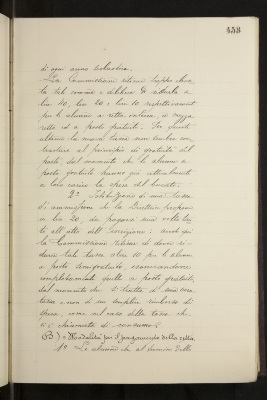 453
di ogni anno scolastico.
La Commissione ritiene troppo elevata
la tal somma e delibera di ridurla a
lire 40, lire 20 e lire 10 rispettivamente
per le alunne a retta intera, a mezza
retta ed a posto gratuito. In quest'
ultimo la nuova tassa non sembra con-
trastare al principio di gratuità del
posto dal momento che le alunne a
posto gratuito hanno già attualmente
a loro carico la spesa del bucato.
2º Istituzione di una Tassa
d'ammissione che la Direttrice propone
in lire 20, da pagarsi una volta tanto
all'atto dell'iscrizione: anche qui
la Commissione ritiene di dover ri-
durre tale tassa a lire 10 per le alunne
a posto semigratuito, esonerandone
completamente quelle a posto gratuito,
dal momento che si tratta di una vera
tassa e non di un semplice rimborso di
spese, come nel caso della tassa che
si è chiamata di consumo.
B) = Modalità per il pagamento della retta.
1º Le alunne che al termine delle